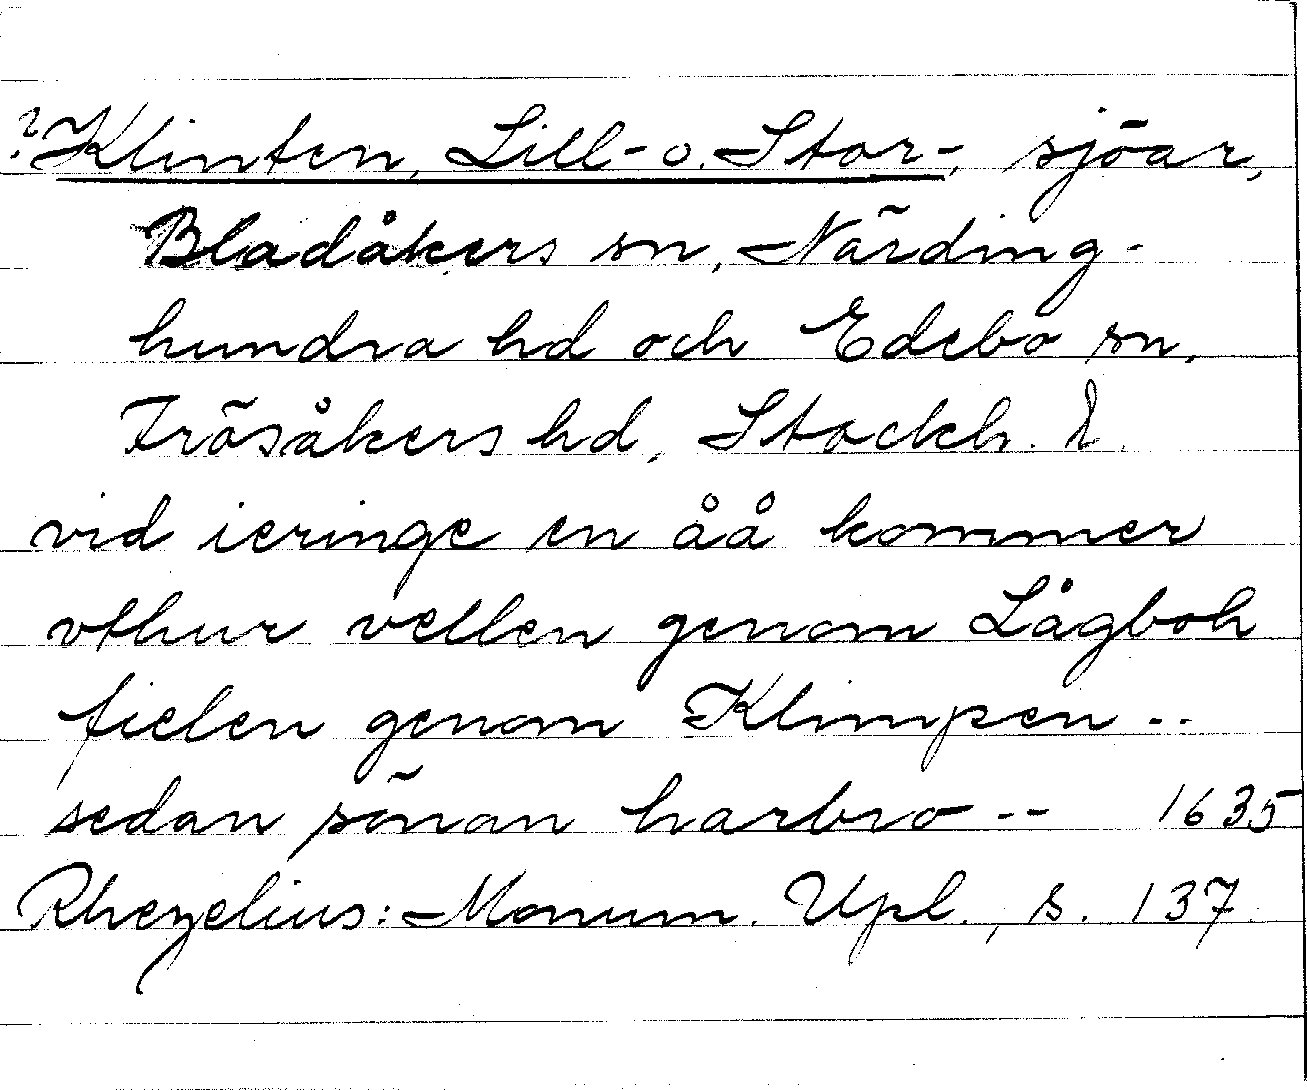 ?Klinten, Lill- o. Stor-, sjöar,
Bladåkers sn, Närding-
hundra hd och Edebo sn,
Frösåkers hd, Stockh. l.
vid ieringe en åå kommer
vthur vellen genom Lågboh
fielen genom Klimpen --
sedan sönan harbro -- 1635
Rhezelius: Monum. Upl., s. 137.